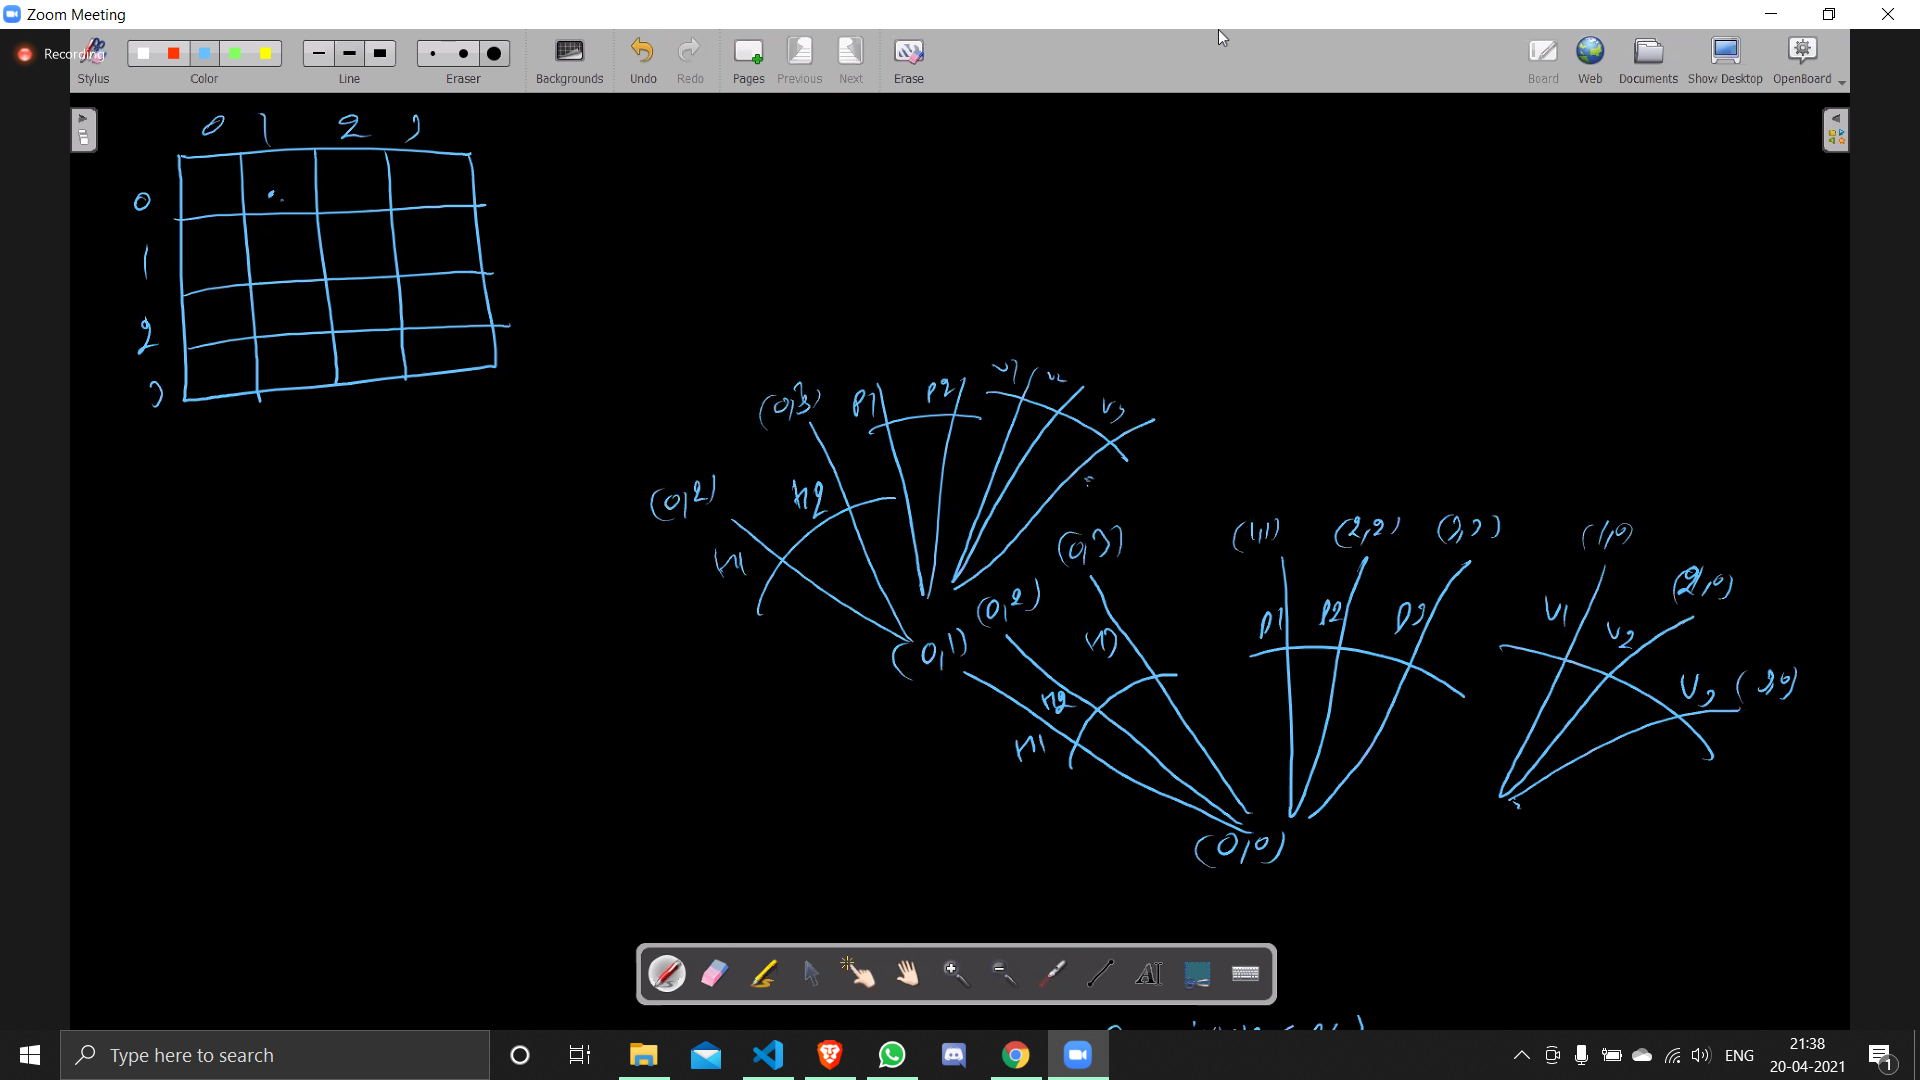 Zoom Meeting
Recording
Stylus
Color
Line
Eraser
Backgrounds
Undo
Redo
Pages
Previous
Next
Erase
Board
Web
Documents
Show Desktop
OpenBoard
0 1 2 3
0
1
2
3
(0,3) P1 P2 V1 V2 V3
(0,2) H1 H2
(0,1)
(0,2) (0,3) (1,1) (2,2) (3,3) (1,0) (2,0)
H1 H2 H3 P1 P2 P3 V1 V2 V3 (3,0)
(0,0)
Type here to search
ENG
21:38
20-04-2021
1